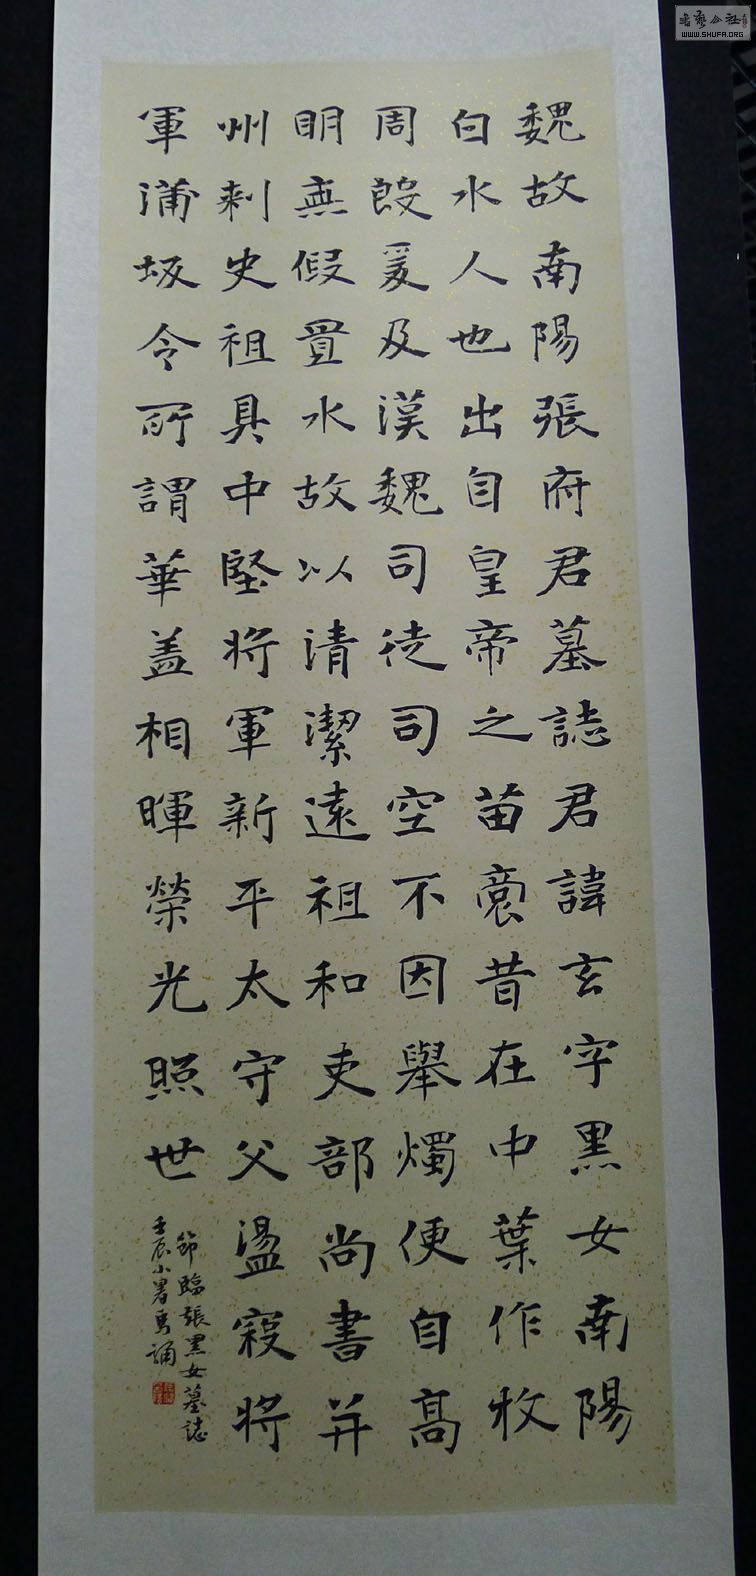 魏故南陽張府君墓誌君諱玄字黑女南陽
白水人也出自皇帝之苗裔昔在中葉作牧
周殷爰及漢魏司徒司空不因舉燭便自高
明無假置水故以清潔遠祖和吏部尚書并
州刺史祖具中堅將軍新平太守父盪寇將
軍蒲坂令所謂華盖相暉榮光照世
節臨張黑女墓誌
壬辰小暑
WWW.SHUFA.ORG